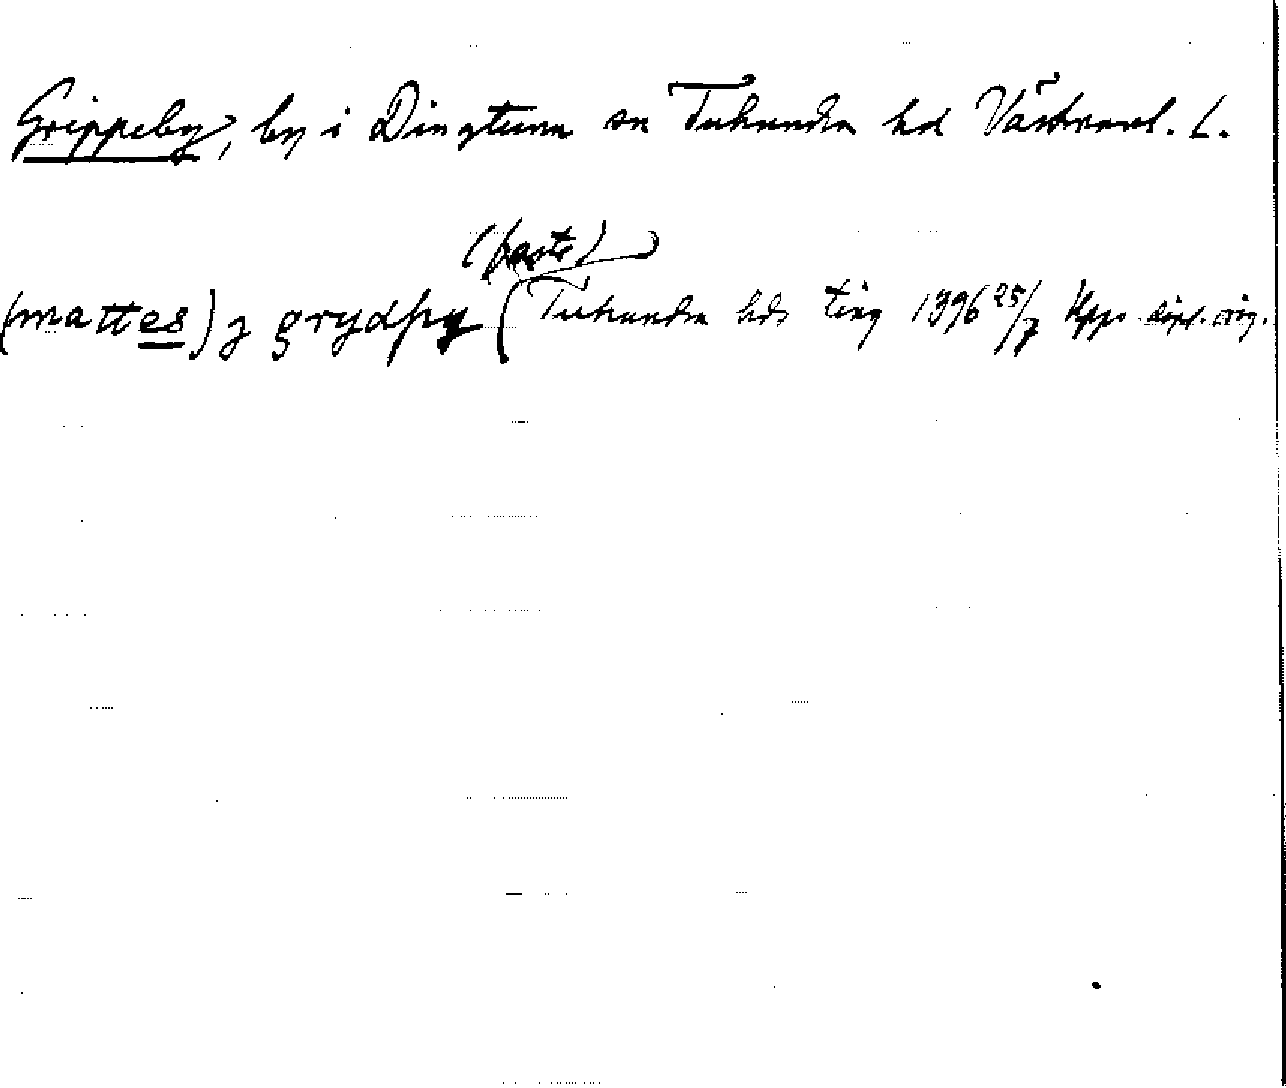 Grippeby, by i Dingtuna sn Tuhundra hd Västmanl. L.
(fasta)
(mattes) j grydhby (Tuhundra hds ting 1396 25/7 Upps. dipl. orig.